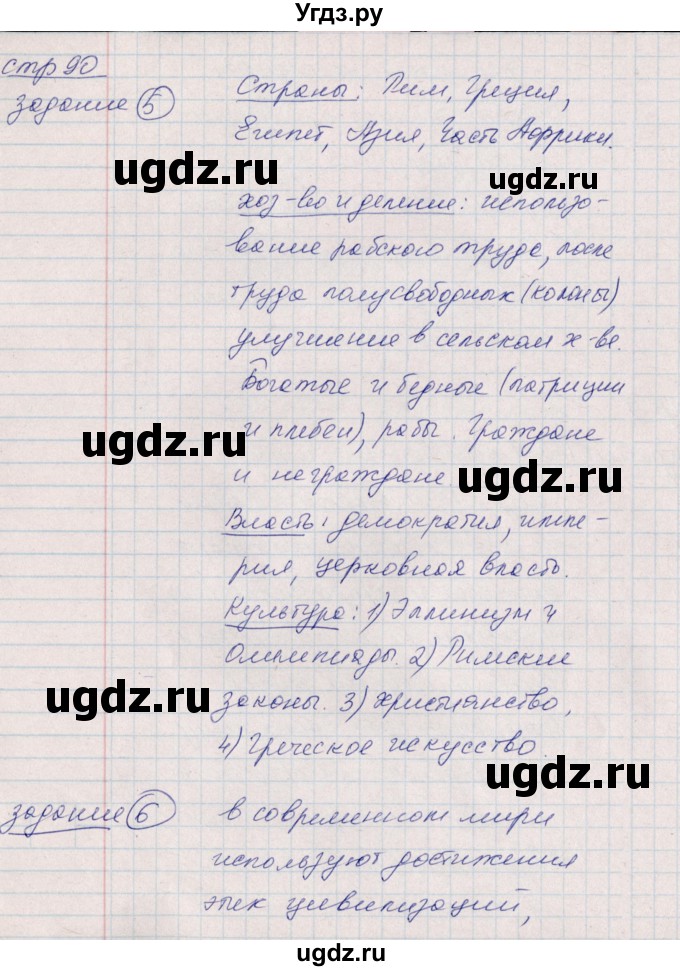 Угдз.ру
стр 90
задание 5
Страны: Рим, Греция,
Египет, Азия, Часть Африки.
ugdz.ru
ugdz.ru
хоз-во и деление: использо-
вание рабского труда, после
труда полусвободных (колоны)
улучшение в сельском х-ве.
Богатые и бедные (патриции
и плебеи), рабы. Граждане
ugdz.ru
и неграждане
ugdz.ru
Власть: демократия, импе-
рия, церковная власть.
Культура: 1) Эллинизм и
Олимпиады. 2) Римские
ugdz.ru
законы. 3) христианство,
4) Греческое искусство.
ugdz.ru
задание 6
в современном мири
используют достижения
этих цивилизаций,
ugdz.ru